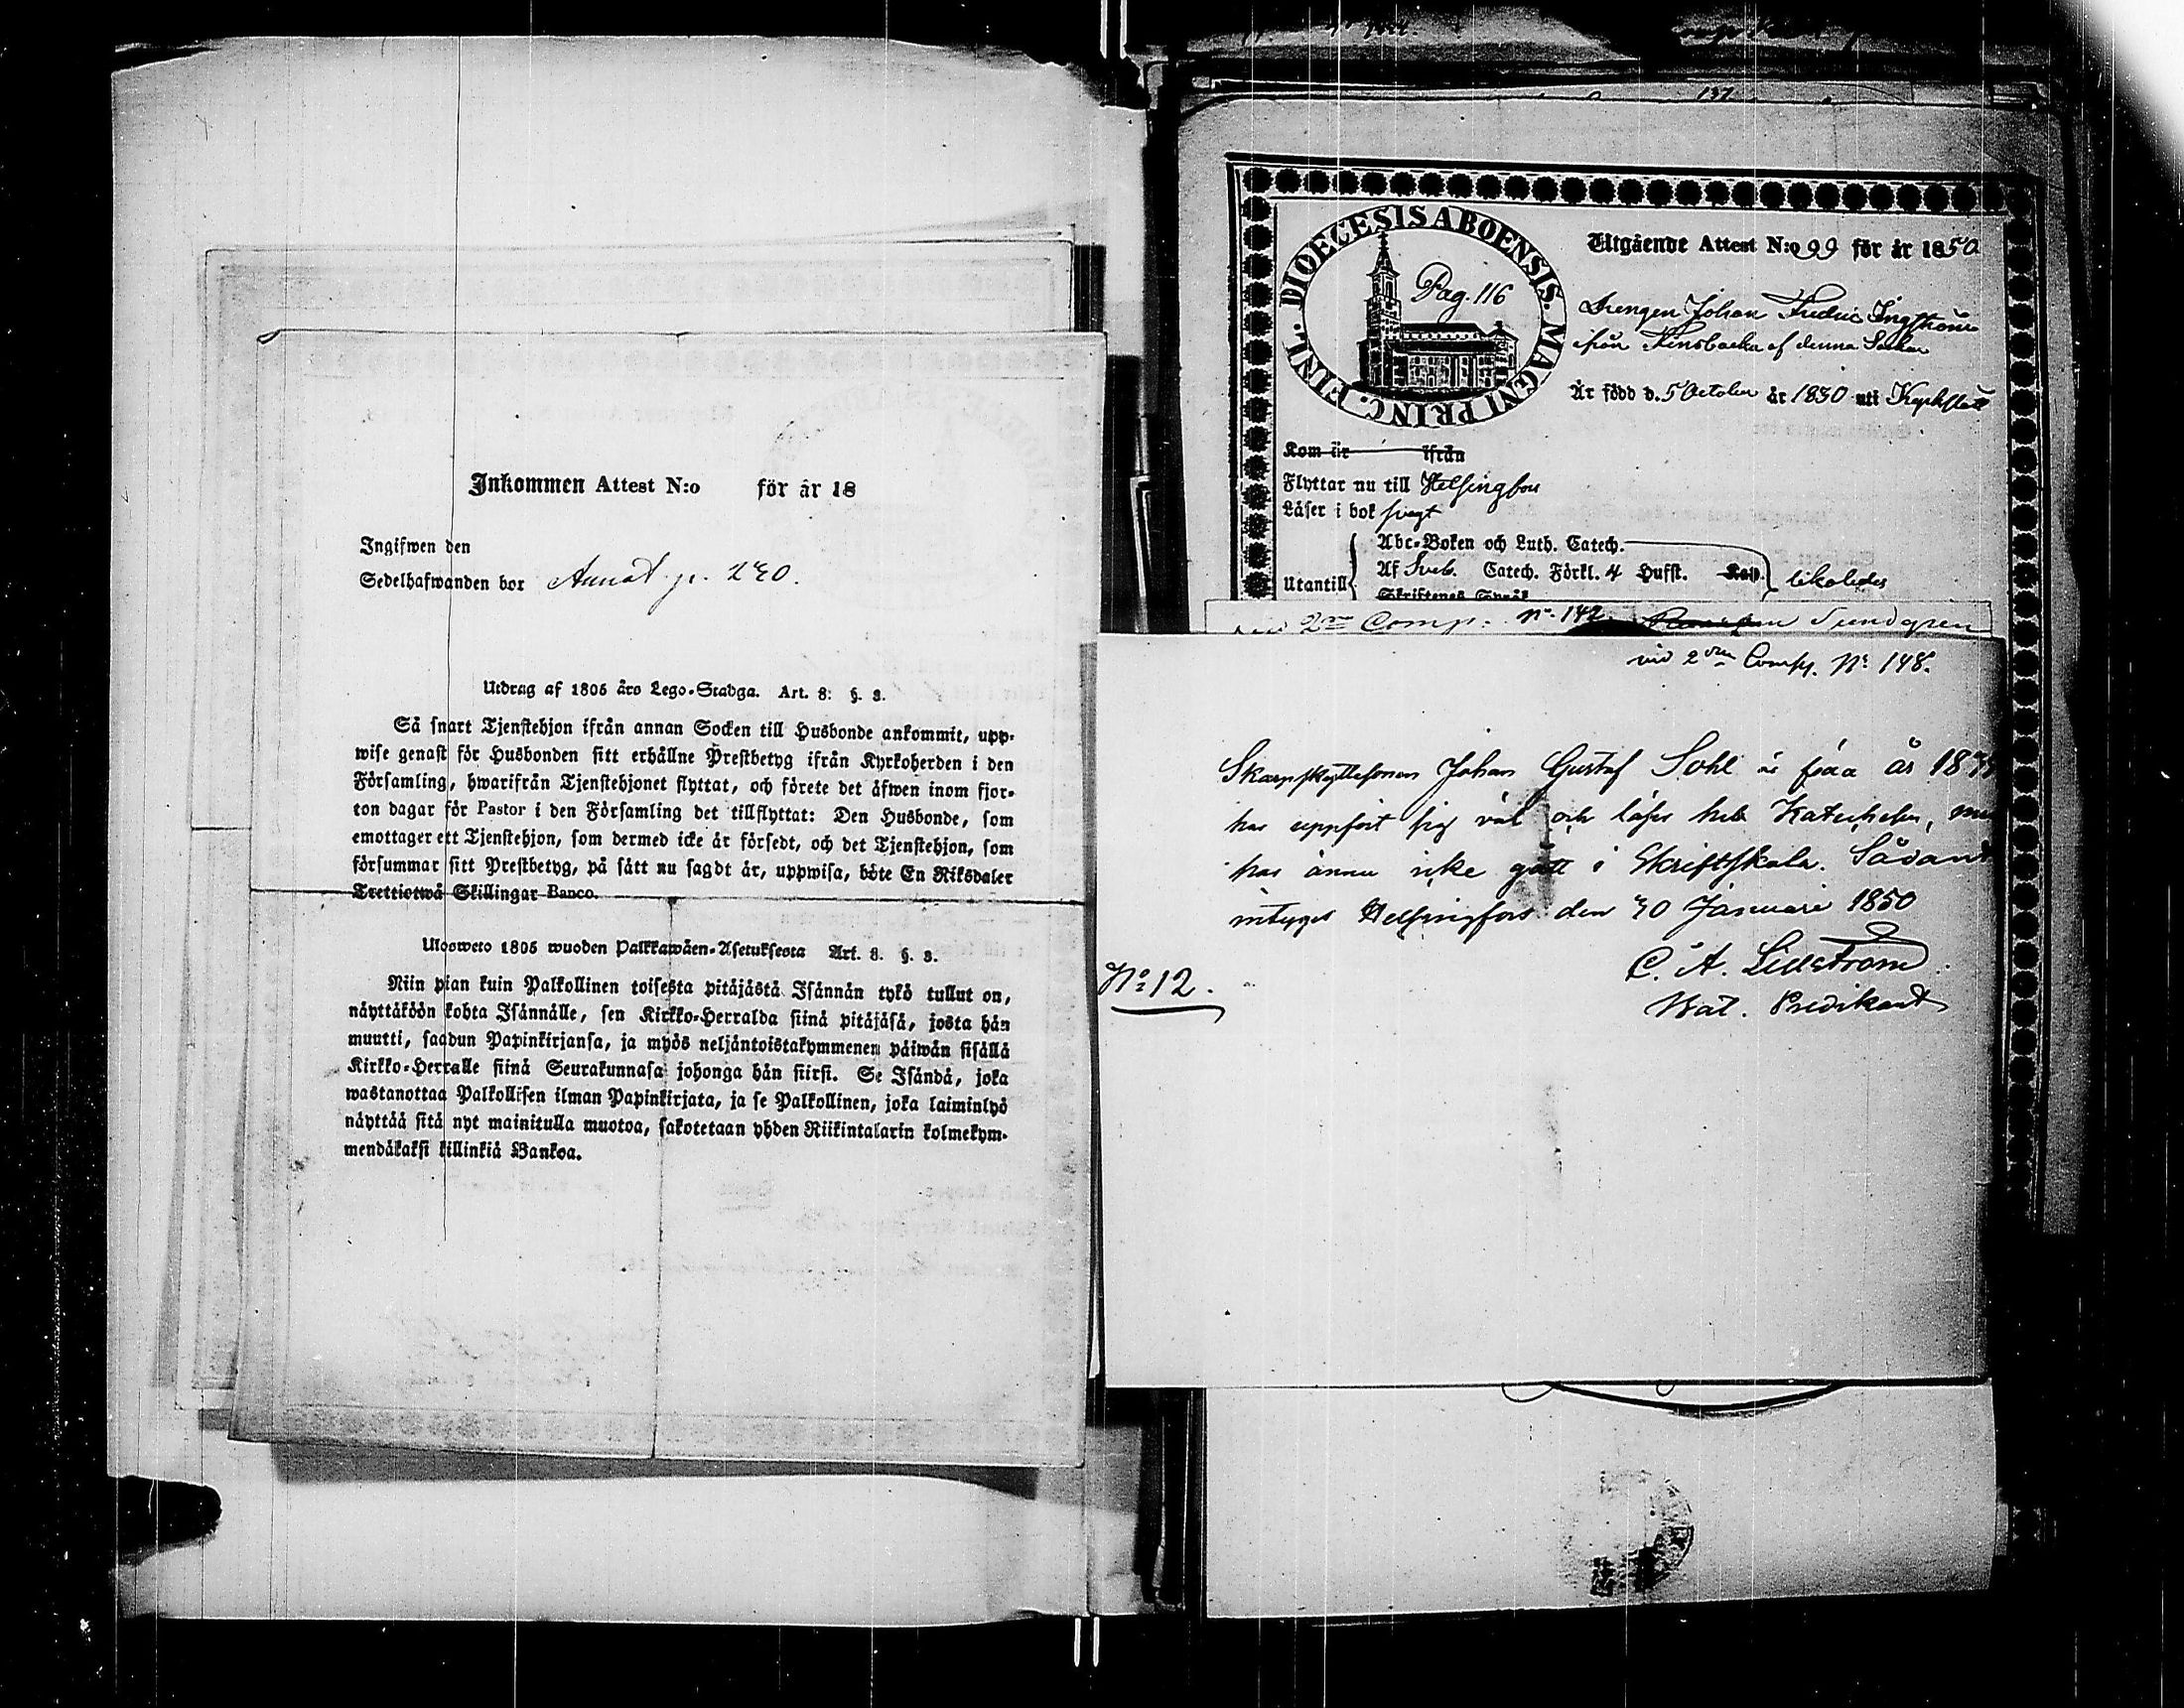 Inkommen Attest N:o för år 18
Ingifwen den
Sedelhafwanden bor Annat p. 240.
Utdrag af 1805 års Lego-Stadga. Art. 8: §. 3.
Så snart Tjenstehjon ifrån annan Socken till Husbonde ankommit, upp-
wise genast för Husbonden sitt erhållne Prestbetyg ifrån Kyrkoherden i den
Församling, hwarifrån Tjenstehjonet flyttat, och förete det äfwen inom fjor-
ton dagar för Pastor i den Församling det tillflyttat: Den Husbonde, som
emottager ett Tjenstehjon, som dermed icke är försedt, och det Tjenstehjon, som
försummar sitt Prestbetyg, på sätt nu sagdt är, uppwisa, böte En Riksdaler
Trettiotwå Skillingar Banco.
Ulosweto 1805 wuoden Palkkawäen-Asetuksesta Art. 8. §. 3.
Niin pian kuin Palkollinen toisesta pitäjästä Isännän tykö tullut on,
näyttäköön kohta Isännälle, sen Kirkko-Herralda siinä pitäjäsä, josta hän
muutti, saadun Papinkirjansa, ja myös neljäntoistakymmenen päiwän sisällä
Kirkko-Herralle siinä Seurakunnasa johonga hän siirsi. Se Isändä, joka
wastanottaa Palkollisen ilman Papinkirjata, ja se Palkollinen, joka laiminlyö
näyttää sitä nyt mainitulla muotoa, sakotetaan yhden Riikintalarin kolmekym-
mendäkaksi killinkiä Bankoa.
137
DIOECESIS ABOENSIS. MAGNI PRINC. FINL.
Pag. 116
Utgående Attest N:o 99 för år 1850
Drengen Johan Fredric
ifrån af denna Socken
Är född d. 5 October år 1830 uti
Kom år ifrån
Flyttar nu till Helsingfors
Läser i bok svagt
Utantill Abc-Boken och Luth. Catech.
Af Sveb. Catech. Förkl. 4 Hufst. likaledes
Skriftenes Språk
2:ra Comp. N:o 142. Sundgren
vid 2:dra Comp. N:o 148.
Skarpskyttesonen Johan Gustaf Sohl är född år
har uppfört sig väl och läser hela Katechesen,
har ännu icke gått i Skriftskola. Sådant
intygas Helsingfors den 30 Januari 1850
C. A. Lillström
Bat. Predikant
N:o 12.